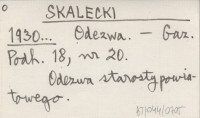 SKALECKI
1930... Odezwa. – Gaz.
Podh. 18, nr 20.
Odezwa starosty powia-
towego.